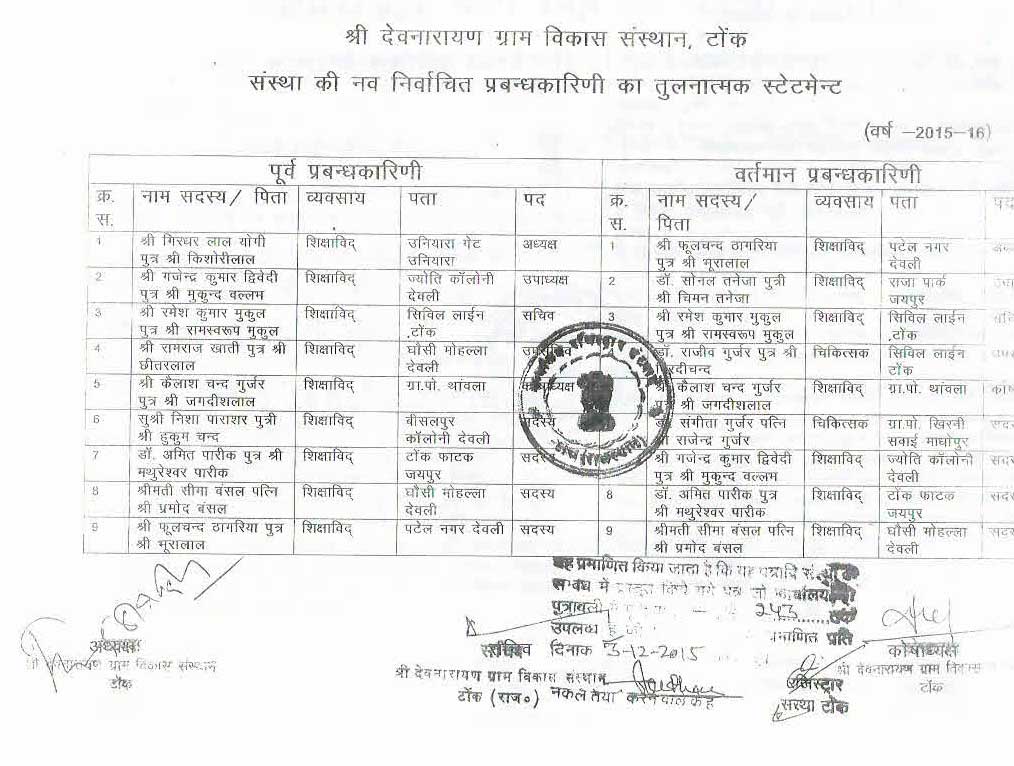 श्री देवनारायण ग्राम विकास संस्थान, टोंक
संस्था की नव निर्वाचित प्रबन्धकारिणी का तुलनात्मक स्टेटमेन्ट
(वर्ष –2015–16)
पूर्व प्रबन्धकारिणी वर्तमान प्रबन्धकारिणी
क्र. नाम सदस्य/ पिता व्यवसाय पता पद क्र. नाम सदस्य/ व्यवसाय पता पद
स. स. पिता
1 श्री गिरधर लाल योगी शिक्षाविद् उनियारा गेट अध्यक्ष 1 श्री फूलचन्द ठागरिया शिक्षाविद् पटेल नगर
पुत्र श्री किशोरीलाल उनियारा पुत्र श्री भूरालाल देवली
2 श्री गजेन्द्र कुमार द्विवेदी शिक्षाविद् ज्योति कॉलोनी उपाध्यक्ष 2 डॉ. सोनल तनेजा पुत्री शिक्षाविद् राजा पार्क
पुत्र श्री मुकुन्द वल्लम देवली श्री चिमन तनेजा जयपुर
3 श्री रमेश कुमार मुकुल शिक्षाविद् सिविल लाईन सचिव 3 श्री रमेश कुमार मुकुल शिक्षाविद् सिविल लाईन
पुत्र श्री रामस्वरूप मुकुल .टोंक पुत्र श्री रामस्वरूप मुकुल .टोंक
4 श्री रामराज खाती पुत्र श्री शिक्षाविद् घौसी मोहल्ला डॉ. राजीव गुर्जर पुत्र श्री चिकित्सक सिविल लाईन
छीतरलाल देवली टोंक
5 श्री कैलाश चन्द गुर्जर शिक्षाविद् ग्रा.पो. थांवला श्री कैलाश चन्द गुर्जर शिक्षाविद् ग्रा.पो. थांवला
पुत्र श्री जगदीशलाल श्री जगदीशलाल
6 सुश्री निशा पाराशर पुत्री शिक्षाविद् बीसलपुर सदस्य डॉ. संगीता गुर्जर पत्नि चिकित्सक ग्रा.पो. खिरनी
श्री हुकुम चन्द कॉलोनी देवली राजेन्द्र गुर्जर सवाई माधोपुर
7 डॉ. अमित पारीक पुत्र श्री शिक्षाविद् टोंक फाटक सदस्य श्री गजेन्द्र कुमार द्विवेदी शिक्षाविद् ज्योति कॉलोनी
मथुरेश्वर पारीक जयपुर पुत्र श्री मुकुन्द वल्लम देवली
8 श्रीमती सीमा बंसल पत्नि शिक्षाविद् घौसी मोहल्ला सदस्य 8 डॉ. अमित पारीक पुत्र शिक्षाविद् टोंक फाटक
श्री प्रमोद बंसल देवली श्री मथुरेश्वर पारीक जयपुर
9 श्री फूलचन्द ठागरिया पुत्र शिक्षाविद् पटेल नगर देवली सदस्य 9 श्रीमती सीमा बंसल पत्नि शिक्षाविद् घौसी मोहल्ला
श्री भूरालाल श्री प्रमोद बंसल देवली
यह प्रमाणित किया जाता है कि यह
पुत्रावली 243
उपलब्ध प्रमाणित प्रति
अध्यक्ष सचिव दिनांक 3-12-2015 कोषाध्यक्ष
श्री देवनारायण ग्राम विकास संस्थान श्री देवनारायण ग्राम विकास संस्थान श्री देवनारायण ग्राम विकास
टोंक टोंक (राज०) रजिस्ट्रार टोंक
संस्था टोंक